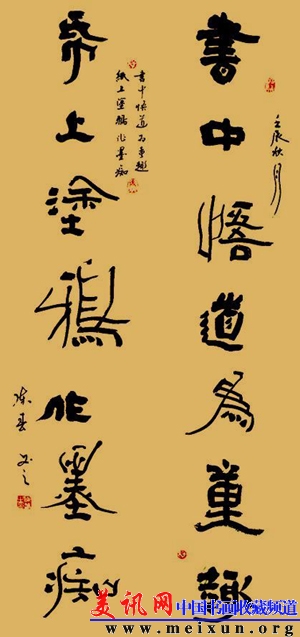 壬辰秋月
書中悟道為童趣
書中悟道为童趣
紙上塗鴉作墨痴
帋上塗鴉作墨痴
陈春
美讯网 中国书画收藏频道
www.meixun.org